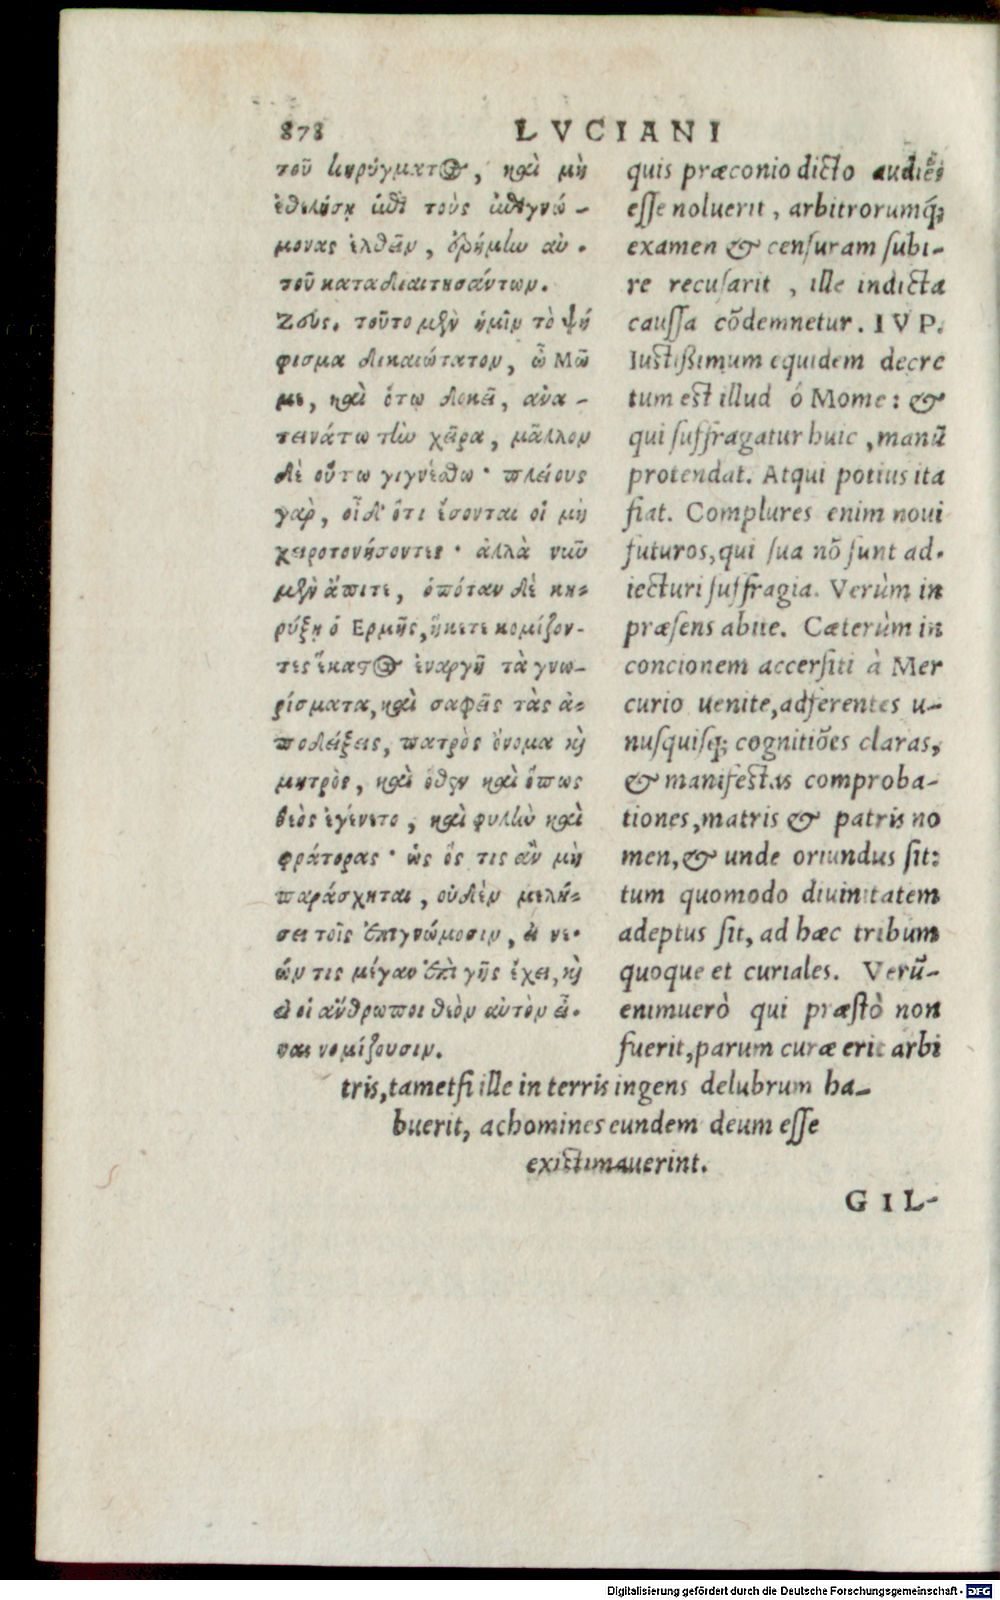 878 LVCIANI
τοῦ κηρύγματος, καὶ μὴ
ἐθελήσῃ ἐπὶ τοὺς ἐπιγνώ-
μονας ἐλθεῖν, ἐρήμην αὐ-
τοῦ καταδιαιτησάντων.
Ζεύς. τοῦτο μὲν ἡμῖν τὸ ψή
φισμα δικαιότατον, ὦ Μῶ
με, καὶ ὅτῳ δοκεῖ, ἀνα-
τεινάτω τὴν χεῖρα, μᾶλλον
δὲ οὕτω γιγνέσθω· πλείους
γὰρ, οἶδ' ὅτι ἔσονται οἱ μὴ
χειροτονήσοντες· ἀλλὰ νῦν
μὲν ἄπιτε, ὁπόταν δὲ κη-
ρύξῃ ὁ Ερμῆς, ἥκετε κομίζον-
τες ἕκαστος ἐναργῆ τὰ γνω-
ρίσματα, καὶ σαφεῖς τὰς ἀ-
ποδείξεις, πατρὸς ὄνομα καὶ
μητρὸς, καὶ ὅθεν καὶ ὅπως
θεὸς ἐγένετο, καὶ φυλὴν καὶ
φράτορας· ὡς ὅς τις ἂν μὴ
παράσχηται, οὐδὲν μελή-
σει τοῖς ἐπιγνώμοσιν, εἰ νε-
ών τις μέγαν ἐπὶ γῆς ἔχει, καὶ
εἰ οἱ ἄνθρωποι θεὸν αὐτὸν εἶ-
ναι νομίζουσιν.
quis præconio dicto audiēs
esse noluerit, arbitrorumq́;
examen & censuram subi-
re recusarit, ille indicta
caussa cōdemnetur. IVP.
Iustißimum equidem decre
tum est illud ó Mome: &
qui suffragatur huic, manū
protendat. Atqui potius ita
fiat. Complures enim noui
futuros, qui sua nō sunt ad-
iecturi suffragia. Verùm in
præsens abite. Cæterùm in
concionem accersiti à Mer
curio uenite, adferentes u-
nusquisq; cognitiōes claras,
& manifestas comproba-
tiones, matris & patris no
men, & unde oriundus sit:
tum quomodo diuinitatem
adeptus sit, ad hæc tribum
quoque et curiales. Verū-
enimuerò qui præstò non
fuerit, parum curæ erit arbi
tris, tametsi ille in terris ingens delubrum ha-
buerit, ac homines eundem deum esse
existimauerint.
GIL-
Digitalisierung gefördert durch die Deutsche Forschungsgemeinschaft - DFG